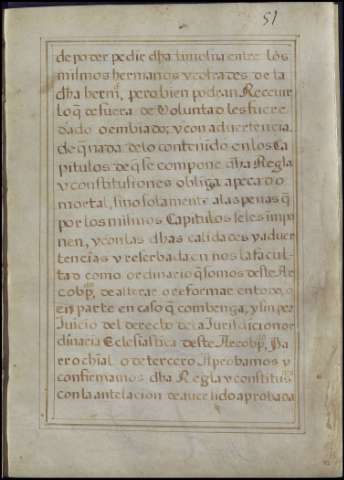 51
de poder pedir dha limosna entre los
mismos hermanos y cofrades de la
dha herm^d, pero bien podran Receuir
lo q̃ de fuera de Voluntad les fuere
dado o embiado; y con aduertencia
de q̃ nada de lo contenido en los Ca
pitulos de q̃ se compone dha Regla
y constitusiones obliga a pecado
mortal, sino solamente a las penas q̃
por los mismos Capitulos se les impo
nen, y con las dhas calidades y aduer
tencias y reserbada en nos la facul
tad como ordinario q̃ somos deste Ar
cobp^do de alterar o reformar en todo, o
en parte en caso q̃ combenga, y sin per
Juicio del derecto de la Jurisdicion or
dinaria Eclesiastica deste Arcobp^do, Pa
rrochial o de tercero Aprobamos y
confirmamos dha Regla y constitus^nes
con la antelacion de auer sido aprobada